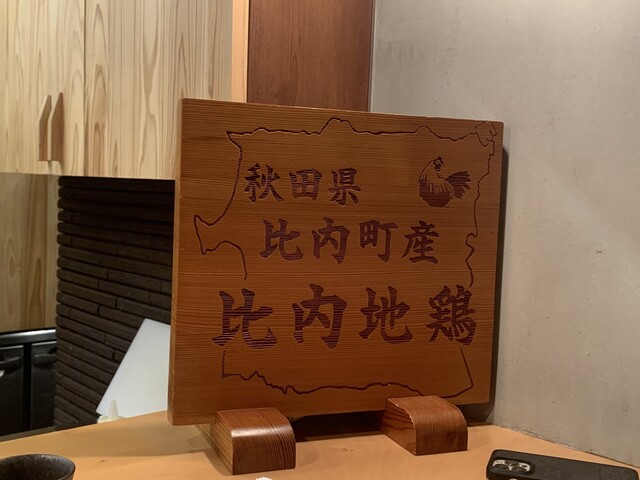 秋田県
比内町産
比内地鶏